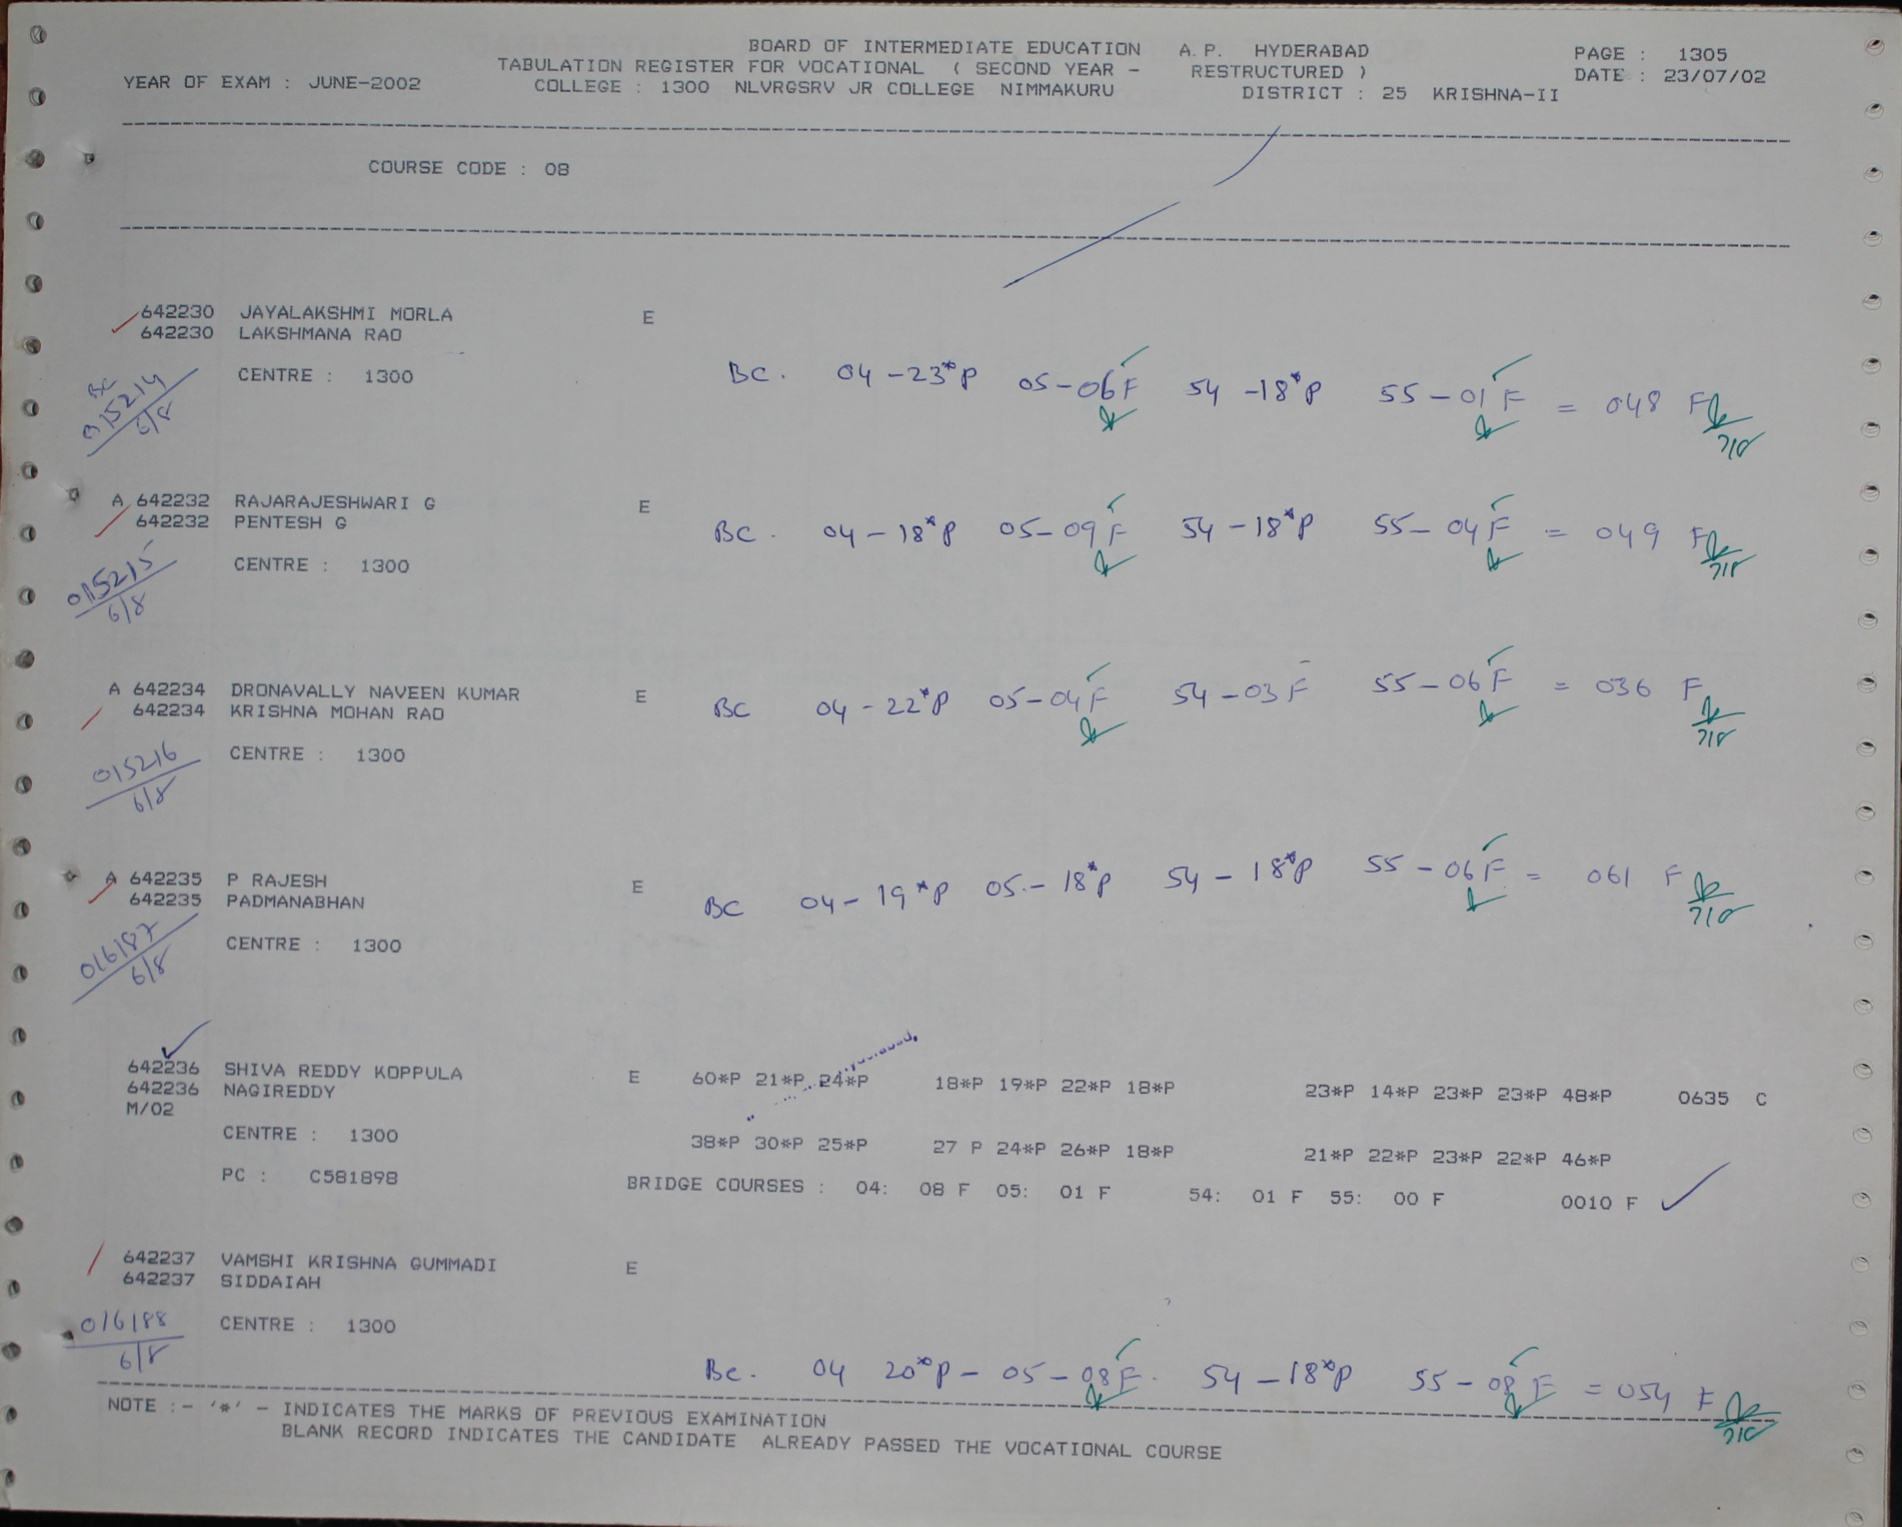 BOARD OF INTERMEDIATE EDUCATION A.P. HYDERABAD PAGE : 1305
TABULATION REGISTER FOR VOCATIONAL ( SECOND YEAR - RESTRUCTURED ) DATE : 23/07/02
YEAR OF EXAM : JUNE-2002 COLLEGE : 1300 NLVRGSRV JR COLLEGE NIMMAKURU DISTRICT : 25 KRISHNA-II
COURSE CODE : 08
642230 JAYALAKSHMI MORLA E
642230 LAKSHMANA RAO
CENTRE : 1300
BC. 04-23*P 05-06F 54-18*P 55-01F = 048 F
BC
015214
6/8
A 642232 RAJARAJESHWARI G E
642232 PENTESH G
BC. 04-18*P 05-09F 54-18*P 55-04F = 049 F
CENTRE : 1300
015215
6/8
A 642234 DRONAVALLY NAVEEN KUMAR E
642234 KRISHNA MOHAN RAO
BC 04-22*P 05-04F 54-03F 55-06F = 036 F
CENTRE : 1300
015216
6/8
A 642235 P RAJESH E
642235 PADMANABHAN
BC 04-19*P 05-18*P 54-18*P 55-06F = 061 F
CENTRE : 1300
016187
6/8
642236 SHIVA REDDY KOPPULA E 60*P 21*P 24*P 18*P 19*P 22*P 18*P 23*P 14*P 23*P 23*P 48*P 0635 C
642236 NAGIREDDY
M/02
CENTRE : 1300 38*P 30*P 25*P 27 P 24*P 26*P 18*P 21*P 22*P 23*P 22*P 46*P
PC : C581898 BRIDGE COURSES : 04: 08 F 05: 01 F 54: 01 F 55: 00 F 0010 F
642237 VAMSHI KRISHNA GUMMADI E
642237 SIDDAIAH
CENTRE : 1300
016188
6/8
BC. 04 20*P - 05-08F. 54-18*P 55-08F = 054 F
NOTE :- '*' - INDICATES THE MARKS OF PREVIOUS EXAMINATION
BLANK RECORD INDICATES THE CANDIDATE ALREADY PASSED THE VOCATIONAL COURSE